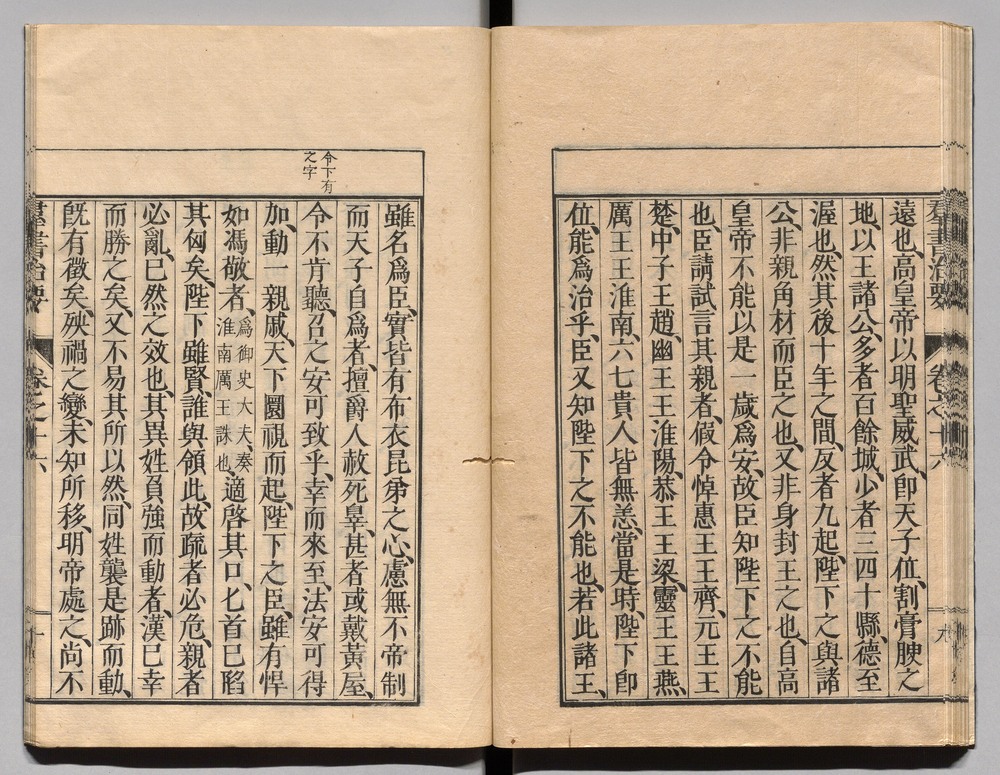 遠也、高皇帝以明聖威武、卽天子位、割膏腴之
地、以王諸公、多者百餘城、少者三四十縣、德至
渥也、然其後十年之間、反者九起、陛下之與諸
公、非親角材而臣之也、又非身封王之也、自高
皇帝不能以是一歲爲安、故臣知陛下之不能
也、臣請試言其親者、假令悼惠王王齊、元王王
楚、中子王趙、幽王王淮陽、恭王王梁、靈王王燕、
厲王王淮南、六七貴人皆無恙、當是時、陛下卽
位、能爲治乎、臣又知陛下之不能也、若此諸王、
雖名爲臣、實皆有布衣昆弟之心、慮無不帝制
而天子自爲者、擅爵人赦死辠、甚者或戴黃屋、
令下有
之字
令不肯聽、召之安可致乎、幸而來至、法安可得
加、動一親戚、天下圜視而起、陛下之臣、雖有悍
如馮敬者、爲御史大夫、奏淮南厲王誅也、適啓其口、匕首已陷
其匈矣、陛下雖賢、誰與領此、故疏者必危、親者
必亂、已然之效也、其異姓負強而動者、漢已幸
而勝之矣、又不易其所以然、同姓襲是跡而動、
旣有徵矣、殃禍之變、未知所移、明帝處之、尚不
羣書治要
卷之十六